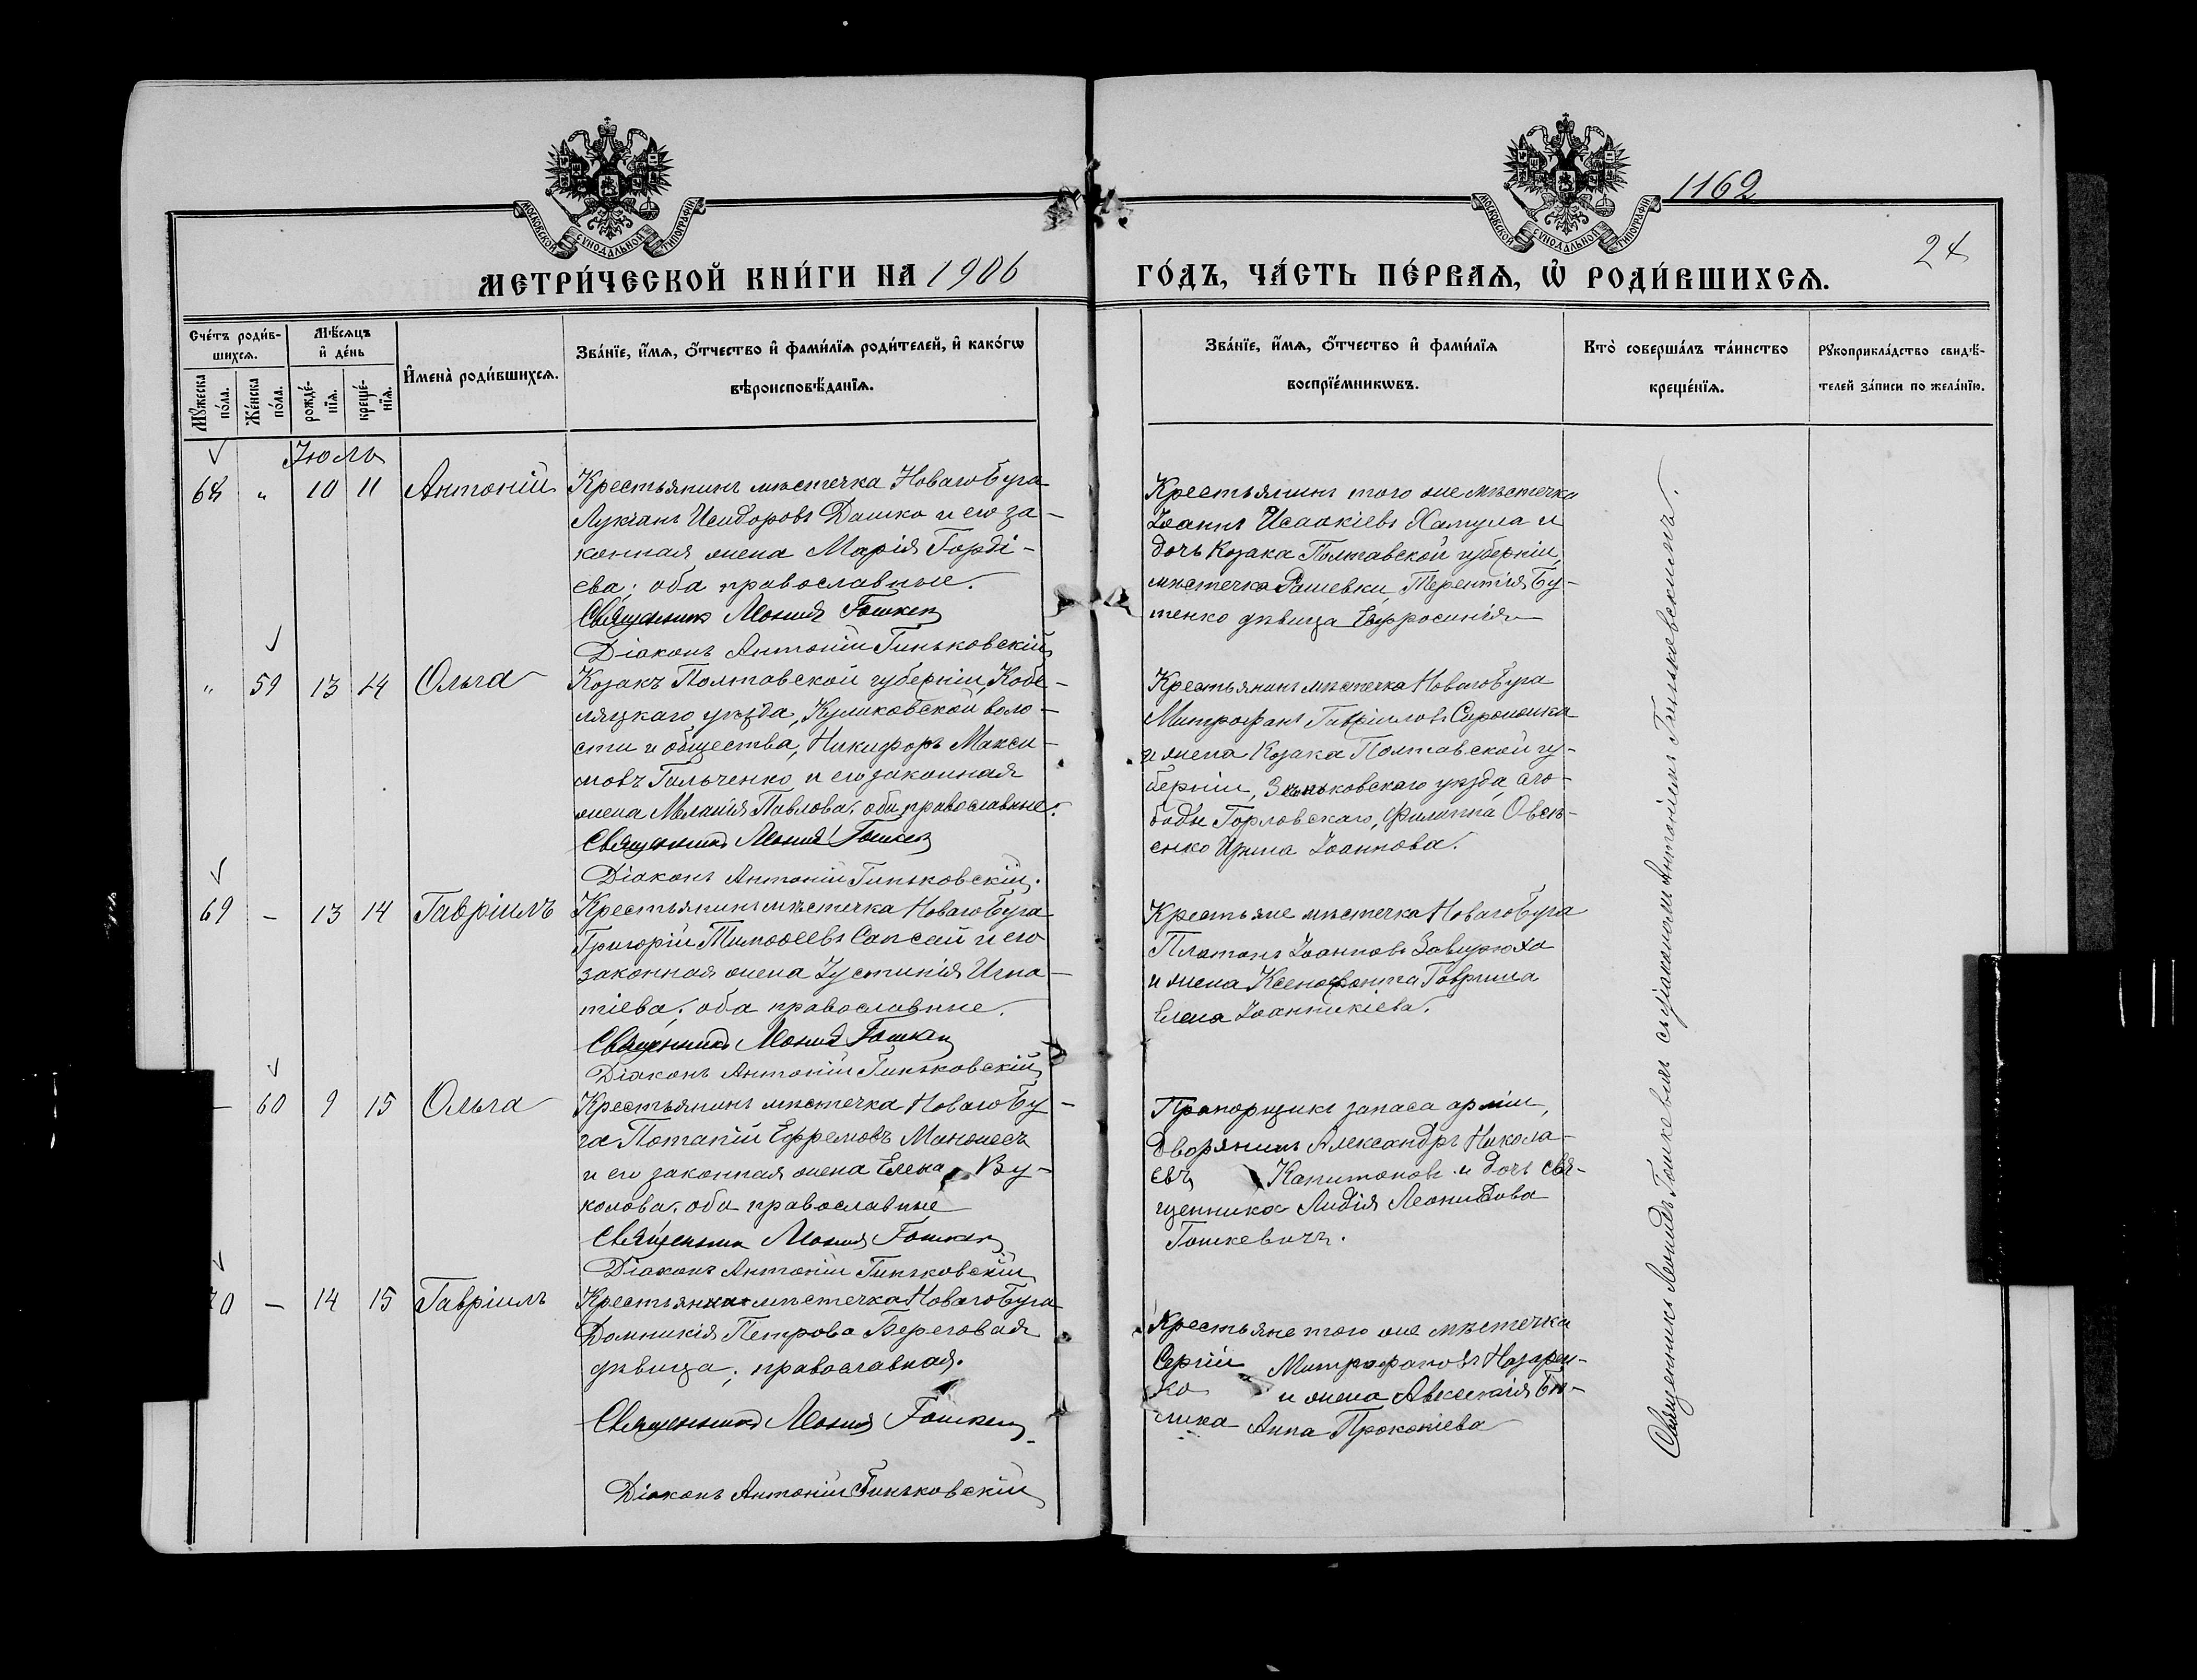 1162
24
МОСКОВСКОЙ СѴНОДАЛЬНОЙ ТИПОГРАФІИ
МОСКОВСКОЙ СѴНОДАЛЬНОЙ ТИПОГРАФІИ
МЕТРИ́ЧЕСКОЙ КНИ́ГИ НА 1906
ГО́ДЪ, ЧА́СТЬ ПЕ́РВАѦ, Ѡ҆ РОДИ́ВШИХСѦ.
Сче́тъ роди́в-
шихсѧ.
Мꙋ́жеска по́ла.
Же́нска по́ла.
Мѣ́сѧцъ
и҆ де́нь
рожде́-
нїѧ.
креще́-
нїѧ.
И҆мена̀ роди́вшихсѧ.
Зва́нїе, и҆́мѧ, ѻ҆́тчество и҆ фами́лїѧ роди́телей, и҆ како́гѡ
вѣроисповѣ́данїѧ.
Зва́нїе, и҆́мѧ, ѻ҆́тчество и҆ фами́лїѧ
воспрїе́мникѡвъ.
Кто̀ соверша́лъ та́инство
креще́нїѧ.
Рꙋкоприкла́дство свидѣ́-
телей за́писи по жела́нїю.
Іюль
68 " 10 11 Антоній
Крестьянинъ мѣстечка Новаго Буга
Лукіанъ Исидоровъ Дашко и его за-
конная жена Марія Горді-
ева; оба православные.
Священникъ Леонидъ Гошкев
Діаконъ Антоній Гиньковскій
Крестьянинъ того же мѣстечка
Іоаннъ Исаакіевъ Хамула и
дочь Козака Полтавской губерніи,
мѣстечка Рашевки Терентія Бу-
тенко дѣвица Евфросинія
" 59 13 14 Ольга
Козакъ Полтавской губерніи, Кобе-
ляцкаго уѣзда, Куликовской воло-
сти и общества, Никифоръ Макси-
мовъ Гальченко и его законная
жена Меланія Павлова; оба православные.
Священникъ Леонидъ Гошкев
Діаконъ Антоній Гиньковскій.
Крестьянинъ мѣстечка Новаго Буга
Митрофанъ Гавріиловъ
и жена Козака Полтавской гу-
берніи, Зѣньковскаго уѣзда, сло-
боды Горловскаго, Филиппа Овсѣ-
енко Ирина Іоаннова.
69 - 13 14 Гавріилъ
Крестьянинъ мѣстечка Новаго Буга
Григорій Тимоѳеевъ Сапсай и его
законная жена Іустинія Игна-
тіева; оба православные.
Священникъ Леонидъ Гошкев
Діаконъ Антоній Гиньковскій
Крестьяне мѣстечка Новаго Буга
Платонъ Іоанновъ Завирюха
и жена Ксенофонта Гавриша
Елена Іоанникіева.
- 60 9 15 Ольга
Крестьянинъ мѣстечка Новаго Бу-
га Потапій Ефремовъ
и его законная жена Елена Ву-
колова; оба православные
Священникъ Леонидъ Гошкев
Діаконъ Антоній Гиньковскій
Прапорщикъ запаса арміи,
дворянинъ Александръ Никола-
евъ Капитоновъ и дочь свя-
щенника Лидія Леонидова
Гошкевичъ.
70 - 14 15 Гавріилъ
Крестьянка мѣстечка Новаго Буга
Домникія Петрова Береговая
дѣвица; православная.
Священникъ Леонидъ Гошкев
Діаконъ Антоній Гиньковскій
Крестьяне того же мѣстечка
Сергій Митрофановъ Назарен-
ко и жена Авксентія Бѣ-
лика Анна Прокопіева
Священникъ Леонидъ Гошкевичъ съ діакономъ Антоніемъ Гиньковскимъ.